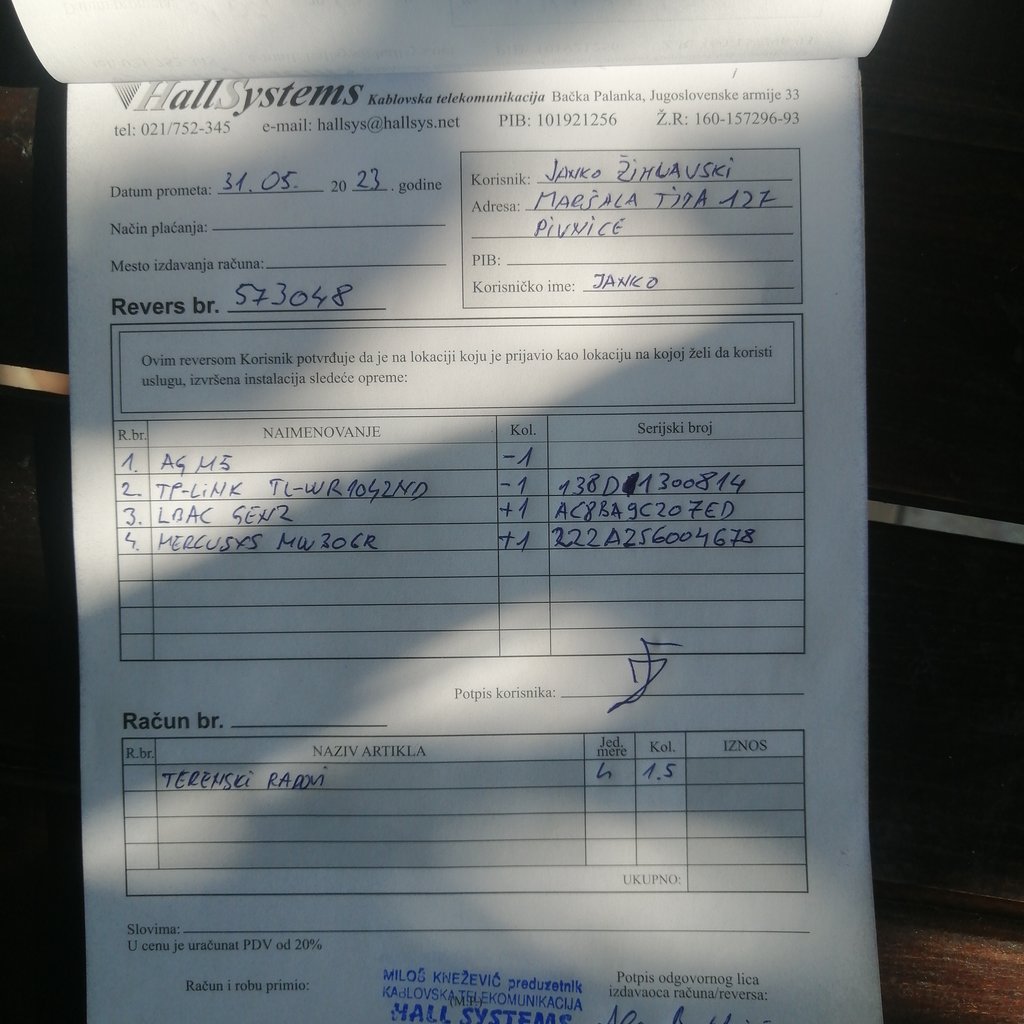 HallSystems Kablovska telekomunikacija Bačka Palanka, Jugoslovenske armije 33
tel: 021/752-345 e-mail: hallsys@hallsys.net PIB: 101921256 Ž.R: 160-157296-93
Datum prometa: 31. 05. 20 23. godine
Način plaćanja:
Mesto izdavanja računa:
Revers br. 573048
Korisnik: JANKO ŽIHLAVSKI
Adresa: MARŠALA TITA 127
PIVNICE
PIB:
Korisničko ime: JANKO
Ovim reversom Korisnik potvrđuje da je na lokaciji koju je prijavio kao lokaciju na kojoj želi da koristi
uslugu, izvršena instalacija sledeće opreme:
R.br. NAIMENOVANJE Kol. Serijski broj
1. AG M5 -1
2. TP-LINK TL-WR1042ND -1 138D11300814
3. LBAC GEN2 +1 AC8BA9C207ED
4. MERCUSYS MW306R +1 222A256004678
Potpis korisnika:
Račun br.
R.br. NAZIV ARTIKLA Jed. mere Kol. IZNOS
TERENSKI RADOVI h 1.5
UKUPNO:
Slovima:
U cenu je uračunat PDV od 20%
Račun i robu primio:
MILOŠ KNEŽEVIĆ preduzetnik
KABLOVSKA TELEKOMUNIKACIJA
(M.P.)
HALL SYSTEMS
Potpis odgovornog lica
izdavaoca računa/reversa: